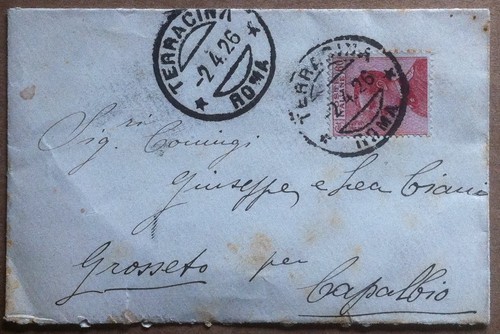 TERRACINA
-2.4.26
ROMA
TERRACINA
-2.4.26
ROMA
Sig.ri Comingi
Giuseppe, e Lea Ciani
Grosseto per
Capalbio